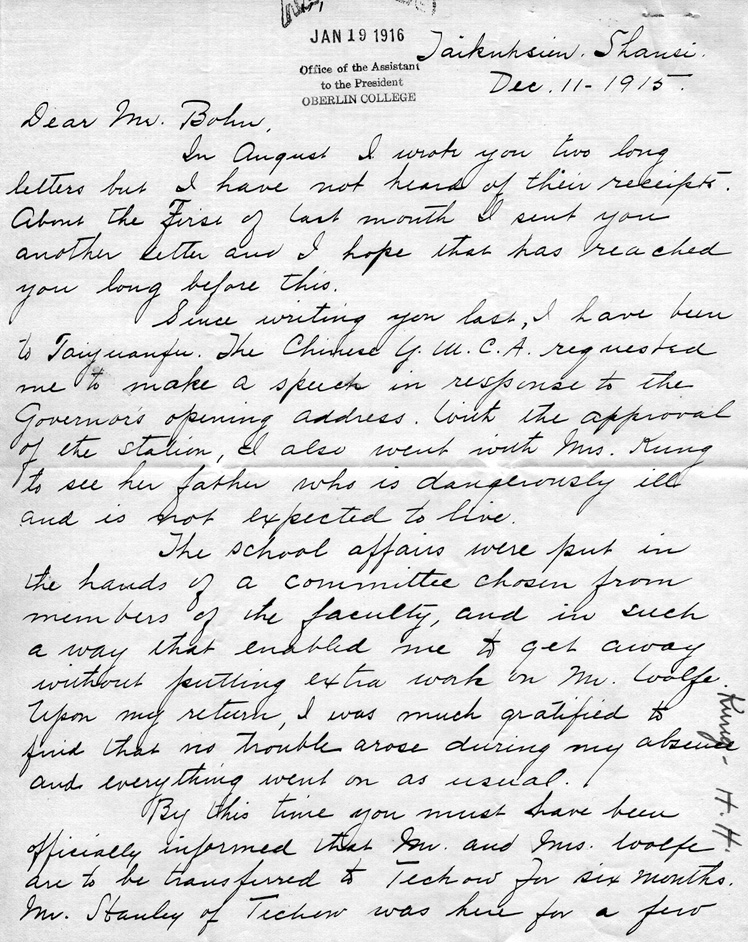 JAN 19 1916
Office of the Assistant
to the President
OBERLIN COLLEGE
Taikuhsien, Shansi.
Dec. 11 - 1915.
Dear Mr. Bohn,
In August I wrote you two long
letters but I have not heard of their receipts.
About the First of last month I sent you
another letter and I hope that has reached
you long before this.
Since writing you last, I have been
to Taiyuanfu. The Chinese Y. M. C. A. requested
me to make a speech in response to the
Governor's opening address. With the approval
of the station, I also went with Mrs. Kung
to see her father who is dangerously ill
and is not expected to live.
The school affairs were put in
the hands of a committee chosen from
members of the faculty, and in such
a way that enabled me to get away
without putting extra work on Mr. Wolfe.
Upon my return, I was much gratified to
find that no trouble arose during my absence
and everything went on as usual.
By this time you must have been
officially informed that Mr. and Mrs. Wolfe
are to be transferred to Techow for six months.
Mr. Stanley of Techow was here for a few
Kung - H. H.